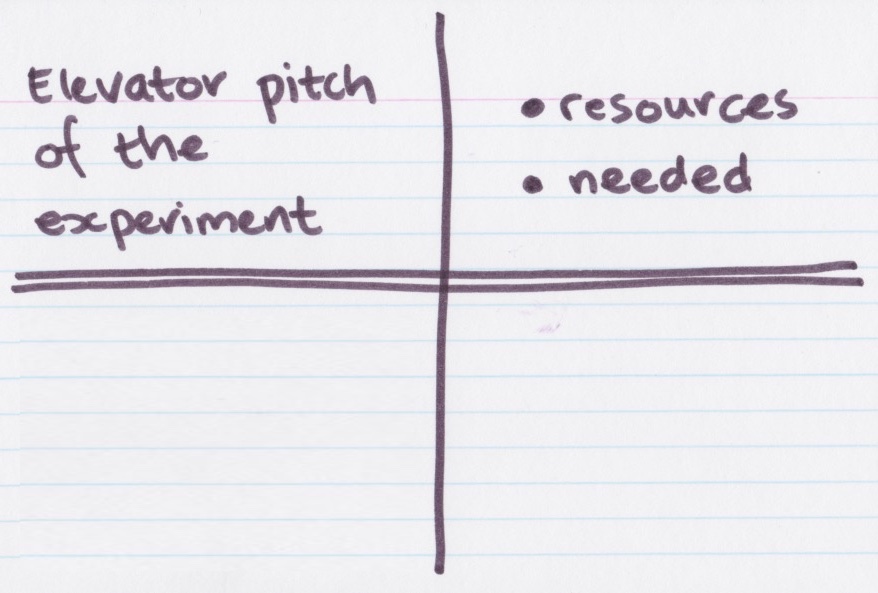 Elevator pitch
of the
experiment
• resources
• needed